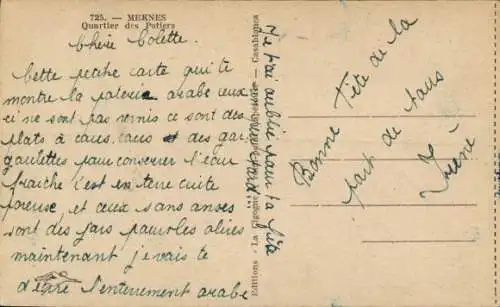 725. — MEKNES
Quartier des Potiers
Chère Colette
Cette petite carte qui te
montre la poterie arabe ceux
ci ne sont pas vernis ce sont des
plats à et des gar
goulettes pour conserver l'eau
fraiche c'est en terre cuite
poreuse et ceux sans anses
sont des jars pour les olives
maintenant je vais te
d'écrire l'enterrement arabe
Editions - La Cigogne - Casablanca
Je t'ai oublié pour ta fête
Bonne Fête de la
part de tous
Irène